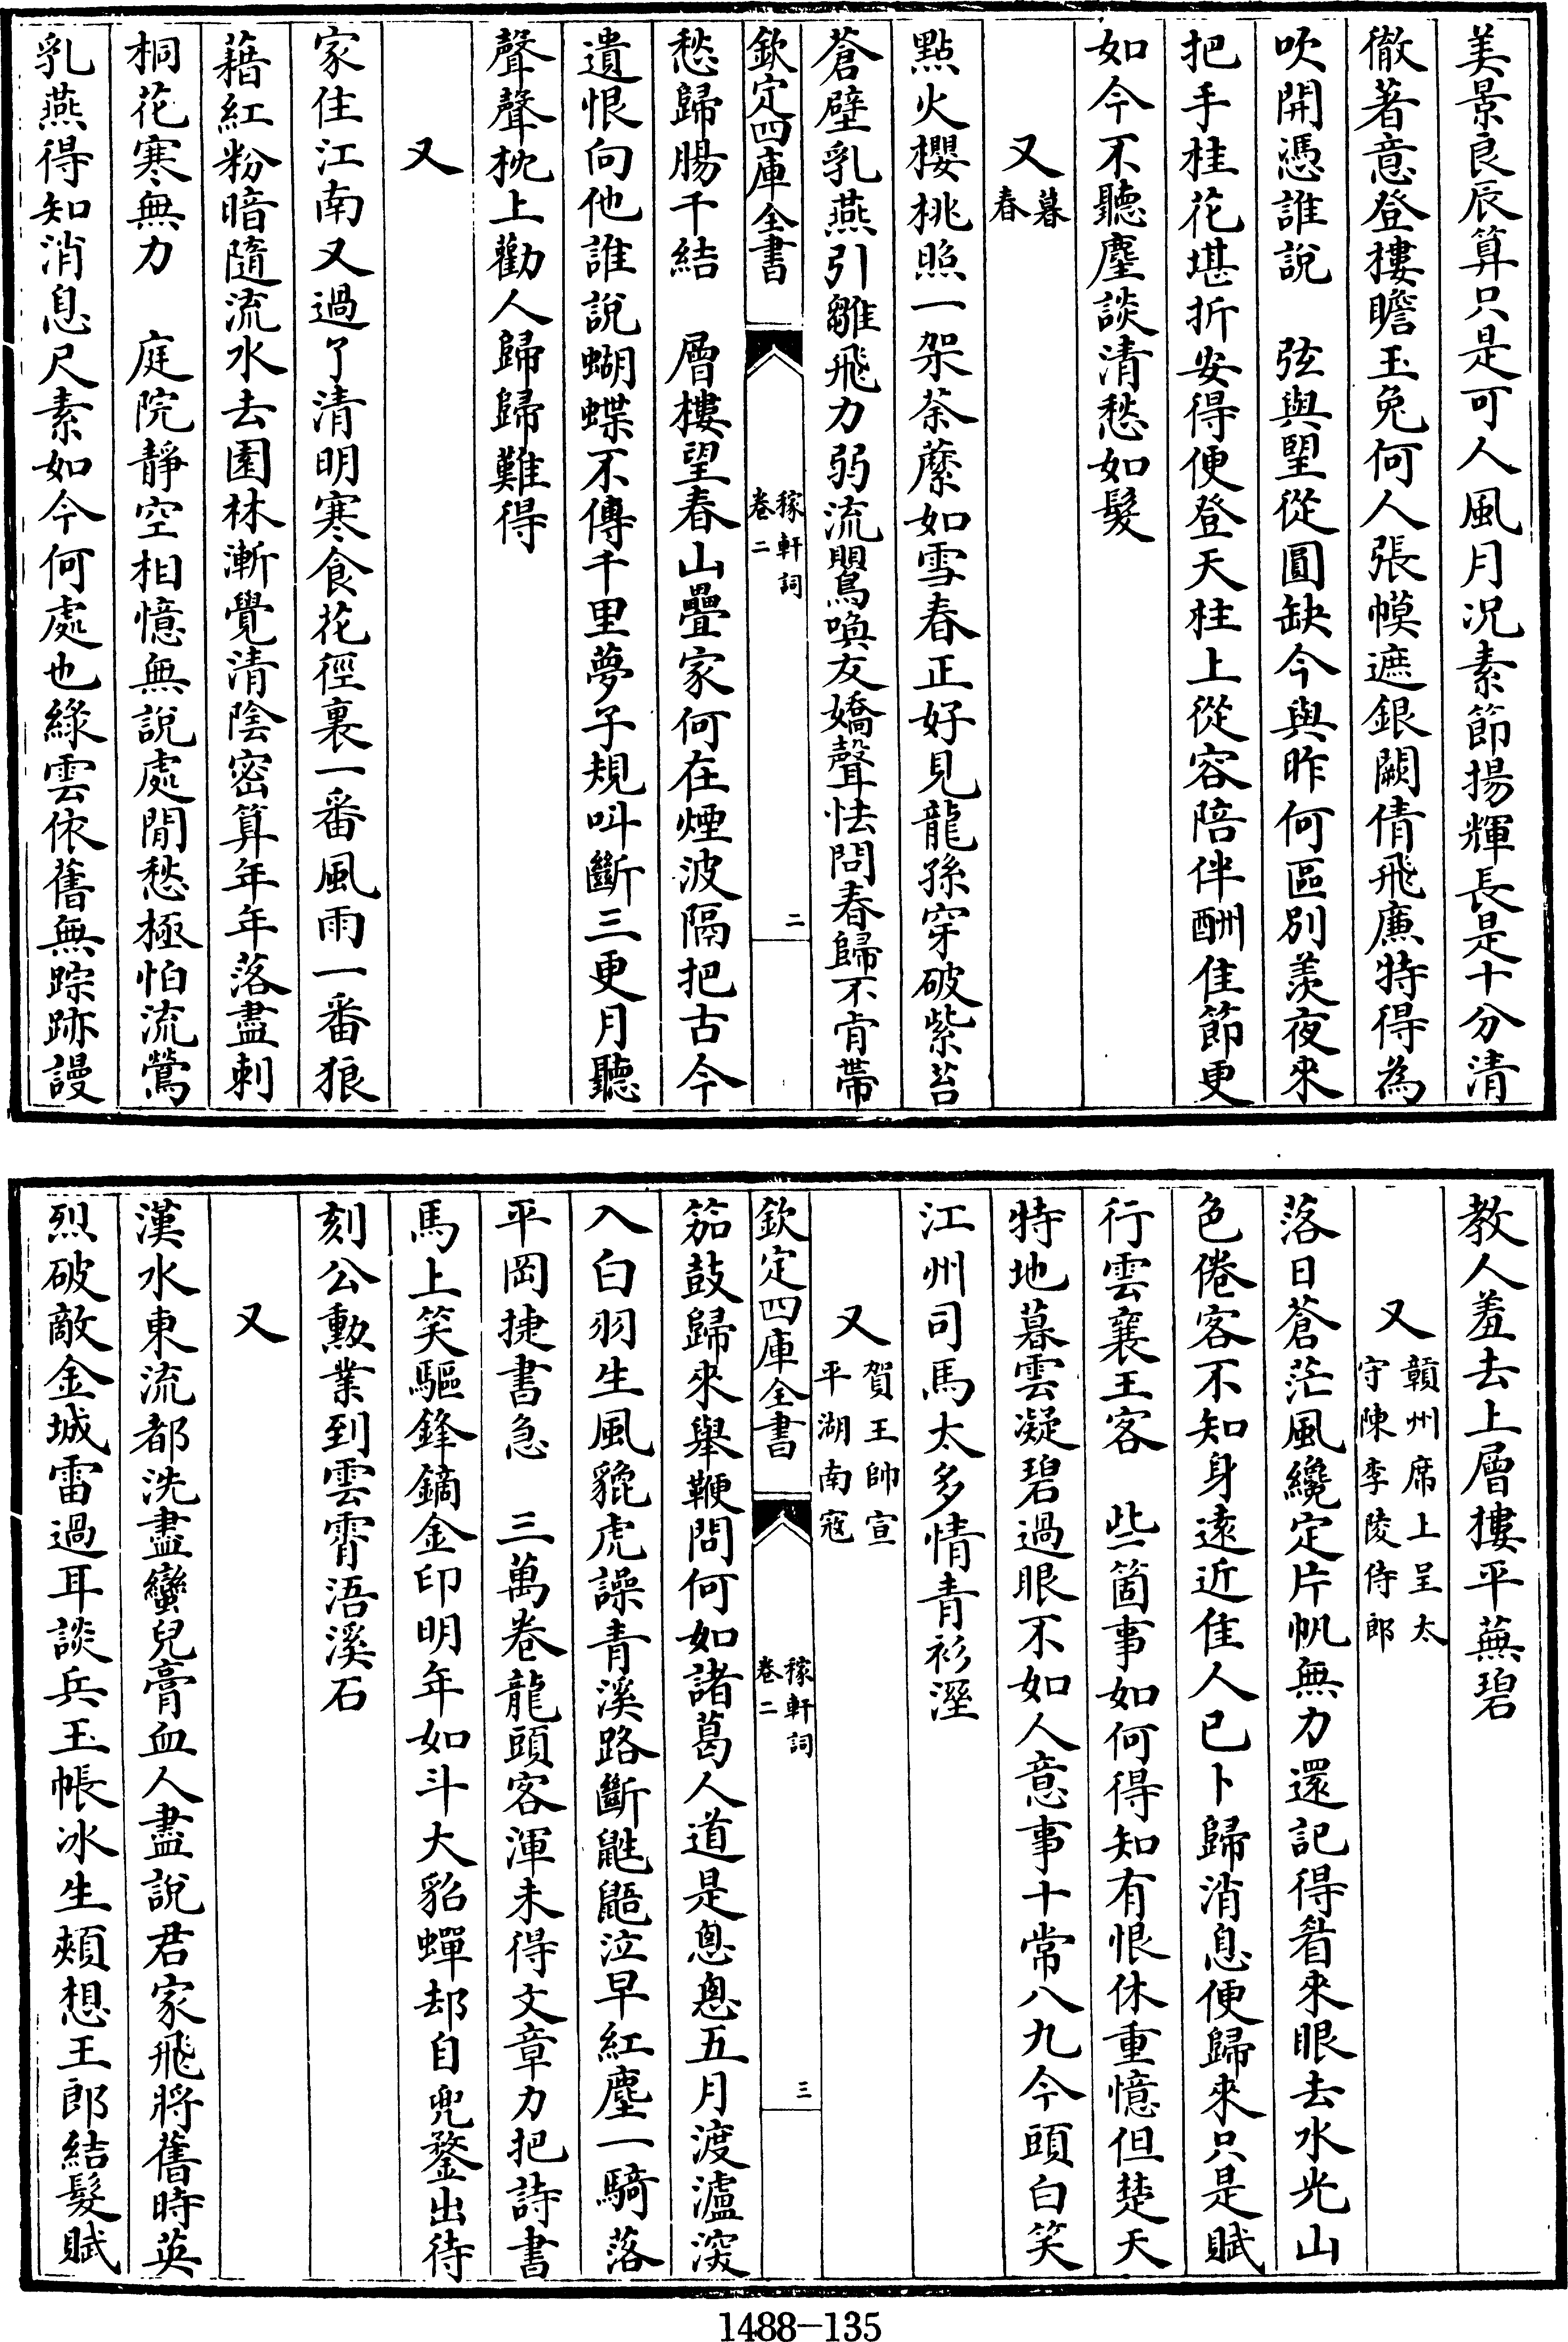 美景良辰算只是可人風月况素節揚輝長是十分清
徹著意登樓瞻玉兔何人張幙遮銀闕倩飛廉特得為
吹開憑誰說　弦與朢從圓缺今與昨何區别羨夜來
把手桂花堪折安得便登天柱上從容陪伴酬佳節更
如今不聽塵談清愁如髮
又暮春
點火櫻桃照一架荼蘼如雪春正好見龍孫穿破紫苔
蒼壁乳燕引雛飛力弱流鸎喚友嬌聲怯問春歸不肯帶
欽定四庫全書　稼軒詞卷二　二
愁歸腸千結　層樓望春山疊家何在煙波隔把古今
遺恨向他誰說蝴蝶不傳千里夢子規叫斷三更月聽
聲聲枕上勸人歸歸難得
又
家住江南又過了清明寒食花徑裏一番風雨一番狼
藉紅粉暗隨流水去園林漸覺清陰密算年年落盡刺
桐花寒無力　庭院静空相憶無說處閒愁極怕流鶯
乳燕得知消息尺素如今何處也綠雲依舊無踪跡謾
教人羞去上層樓平蕪碧
又贛州席上呈太守陳季陵侍郎
落日蒼茫風纔定片帆無力還記得睂來眼去水光山
色倦客不知身遠近佳人已卜歸消息便歸來只是賦
行雲襄王客　些箇事如何得知有恨休重憶但楚天
特地暮雲凝碧過眼不如人意事十常八九今頭白笑
江州司馬太多情青衫溼
又賀王帥宣平湖南寇
欽定四庫全書　稼軒詞卷二　三
笳鼓歸來舉鞭問何如諸葛人道是悤悤五月渡瀘深
入白羽生風貔虎譟青溪路斷鼪鼯泣早紅塵一騎落
平岡捷書急　三萬卷龍頭客渾未得文章力把詩書
馬上笑驅鋒鏑金印明年如斗大貂蟬却自兜鍪出待
刻公勳業到雲霄浯溪石
又
漢水東流都洗盡蠻兒膏血人盡說君家飛將舊時英
烈破敵金城雷過耳談兵玉帳冰生頰想王郎結髮賦
1488-135